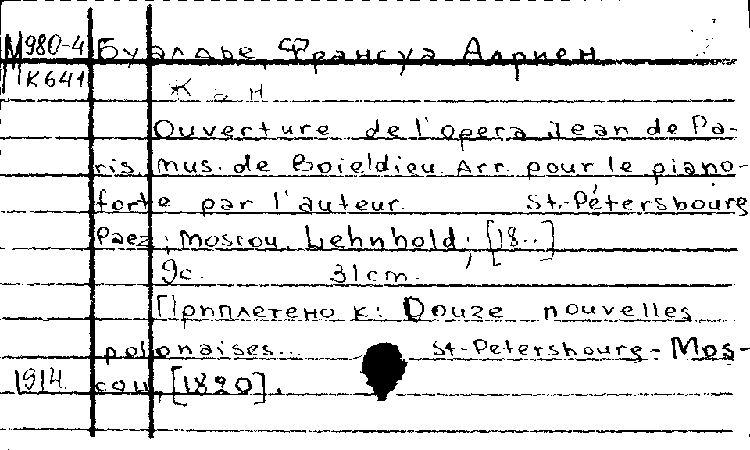 М980-4 Буалдье, Франсуа Адриен
К641
Ж а н
Ouverture de l'opera Jean de Pa-
ris mus. de Boieldieu Arr. pour le piano-
forte par l'auteur. St.-Pétersbourg
Paez; Moscou, Lehnhold; [18..]
9с. 31cm.
Приплетено к: Douze nouvelles
polonaises... St-Petersbourg-Mos-
1914 cou, [1820].